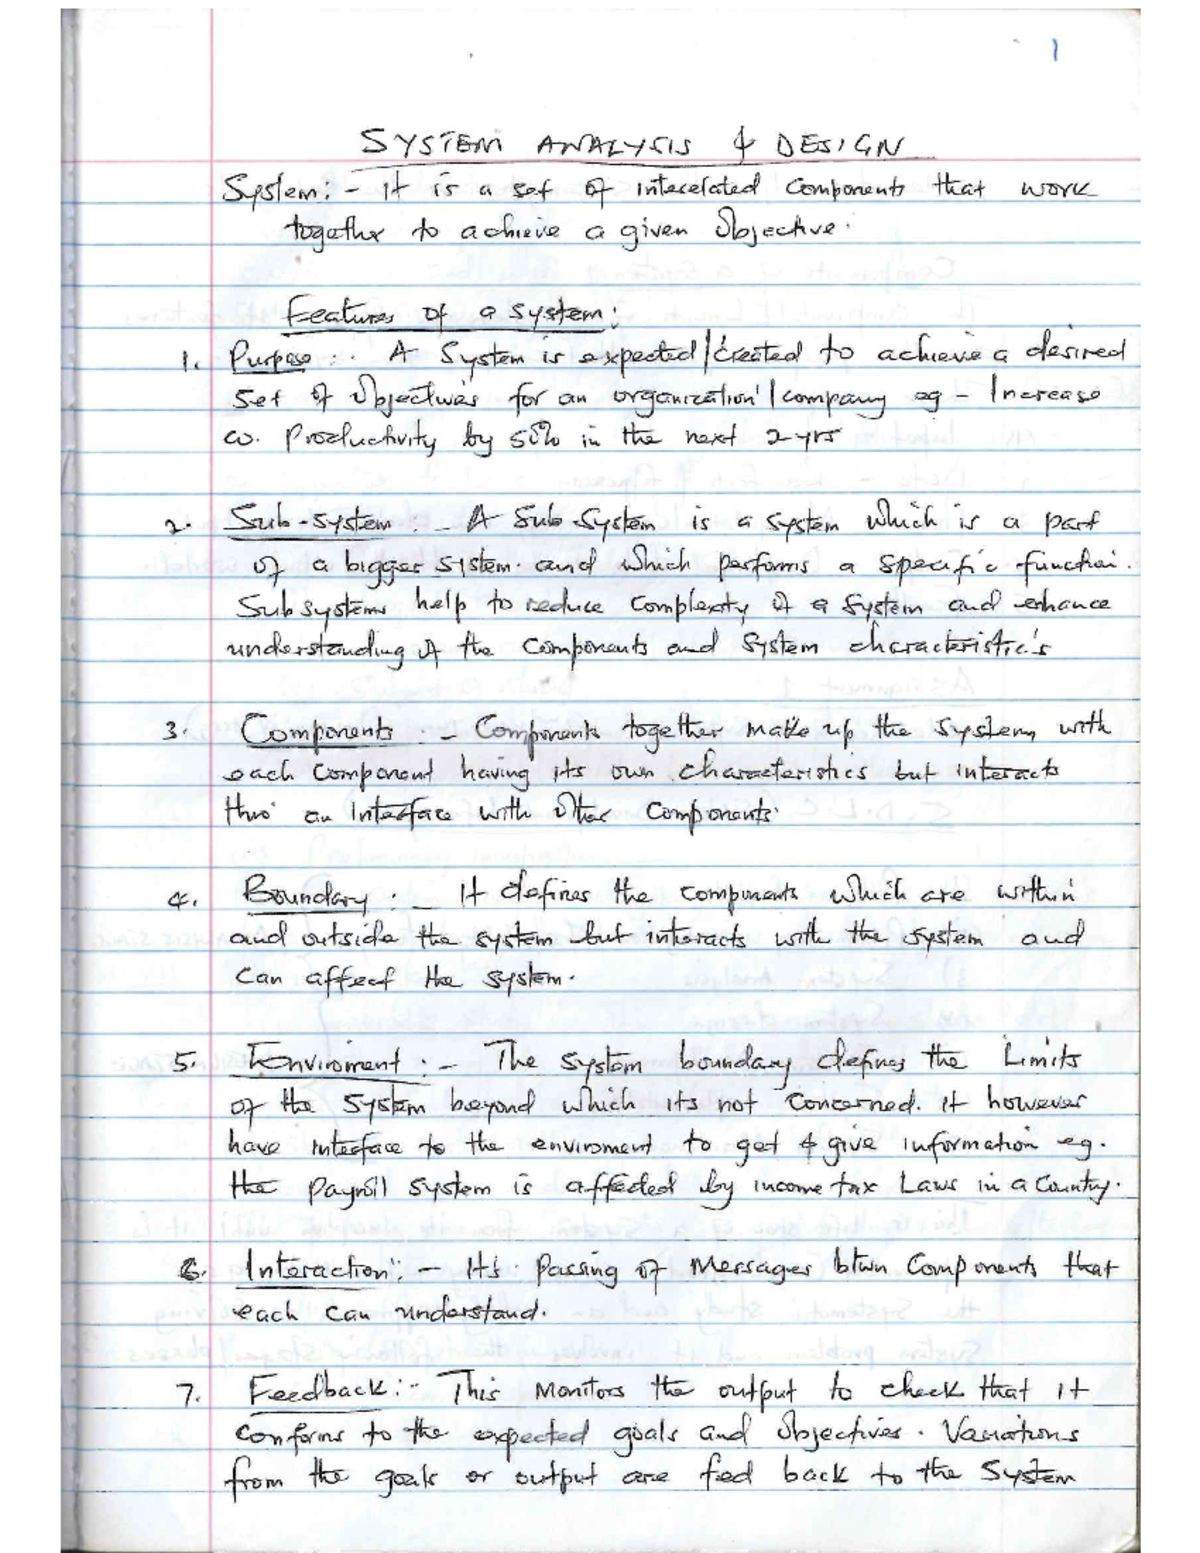 1
SYSTEM ANALYSIS & DESIGN
System: - It is a set of interelated components that work
together to achieve a given Objective.
Features of a system:
1. Purpose :. A System is expected/created to achieve a desired
set of Objectives for an organization/company eg - Increase
co. Productivity by 50% in the next 2 yrs
2. Sub-system : - A Sub-System is a system which is a part
of a bigger system. and which performs a specific function.
Subsystems help to reduce complexity of a system and enhance
understanding of the components and system characteristic's
3. Components : - Components together make up the system, with
each component having its own characteristics but interacts
thro' an Interface with Other Components.
4. Boundary : - It defines the components which are within
and outside the system but interacts with the system and
can affect the system.
5. Enviroment : - The system boundary defines the Limits
of the system beyond which its not concerned. it however
have interface to the enviroment to get & give information eg.
the payroll system is affected by income tax Laws in a Country.
6. Interaction: - Its passing of Messages btwn Components that
each can understand.
7. Feedback:- This Monitors the output to check that it
conforms to the expected goals and Objectives. Variations
from the goals or output are fed back to the System